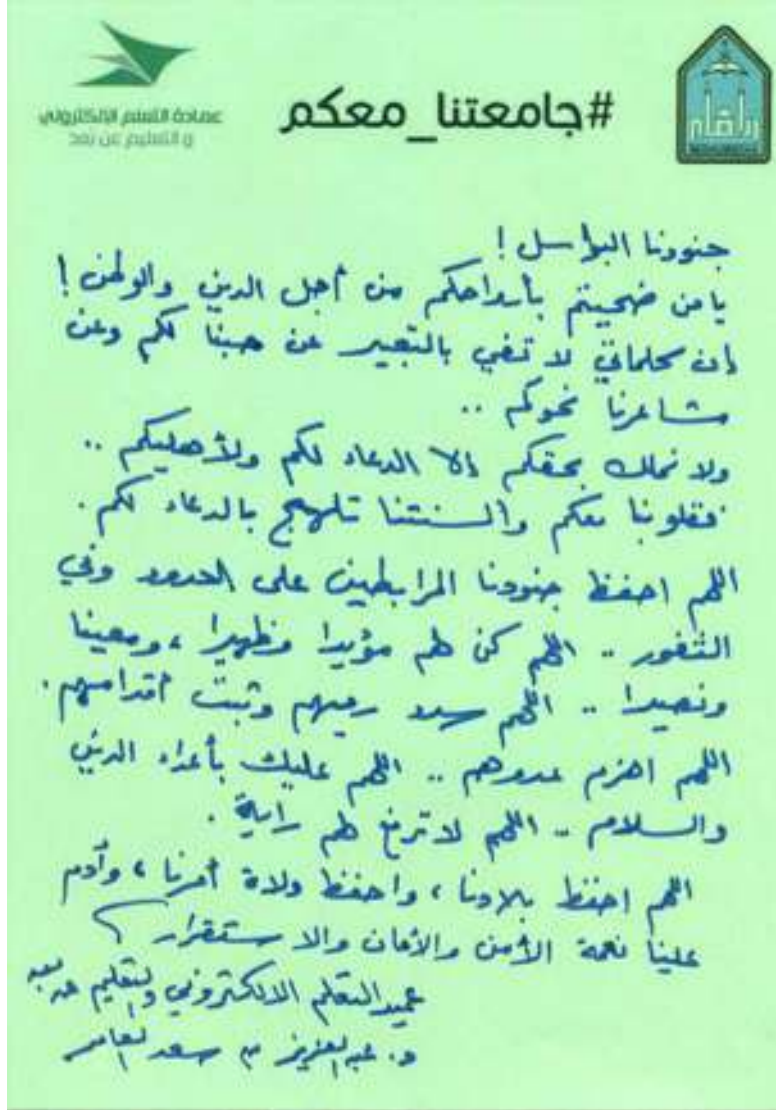 #جامعتنا_معكم
عمادة التعلم الإلكتروني
و التعليم عن بعد
جنودنا البواسل !
يا من ضحيتم بأرواحكم من أجل الدين والوطن !
إن كلماتي لا تفي بالتعبير عن حبنا لكم وعن
مشاعرنا نحوكم ..
ولا نملك بحقكم إلا الدعاء لكم ولأهليكم ..
فقلوبنا معكم وألسنتنا تلهج بالدعاء لكم .
اللهم احفظ جنودنا المرابطين على الحدود وفي
الثغور .. اللهم كن لهم مؤيدا وظهيرا ، ومعينا
ونصيرا .. اللهم سدد رميهم وثبت أقدامهم .
اللهم اهزم عدوهم .. اللهم عليك بأعداء الدين
والسلام .. اللهم لا ترفع لهم راية .
اللهم احفظ بلادنا ، واحفظ ولاة أمرنا ، وأدم
علينا نعمة الأمن والأمان والاستقرار
عميد التعلم الالكتروني والتعليم عن بعد
د. عبدالعزيز بن سعد العامر